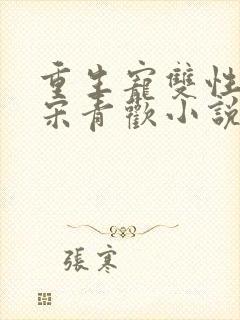 重生寵雙性
宋青歡小說
張寒